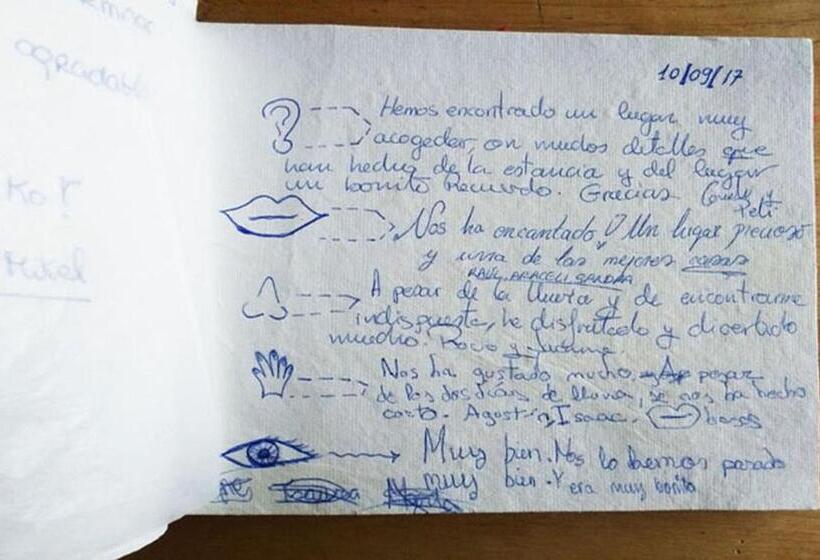 agradabl
Ko?
Mikel
10/09/17
Hemos encontrado un lugar muy
acogedor, con muchos detalles que
han hecho de la estancia y del lugar
un bonito recuerdo. Gracias y
Peli
Nos ha encantado! Un lugar precioso
y una de las mejores casas
RAUL, ARACELI, SANDRA
A pesar de la lluvia y de encontrarme
indispuesta, he disfrutado y divertido
mucho. Rocío y
Nos ha gustado mucho. A pesar
de los dos días de lluvia, se nos ha hecho
corto. Agustín, Isaac. besos
Muy bien. Nos lo hemos pasado
muy bien. Y era muy bonito